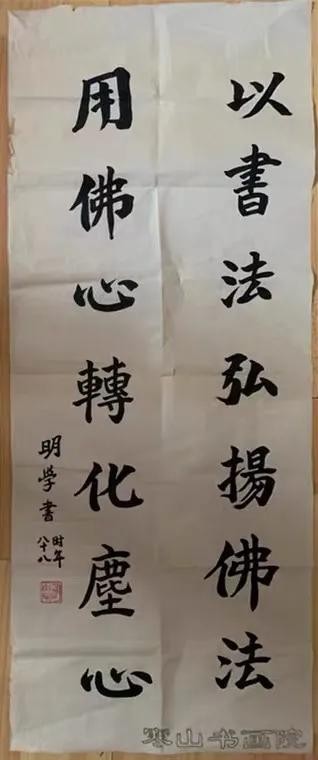 以書法弘揚佛法
用佛心轉化塵心
明學書
时年
八十八
寒山书画院